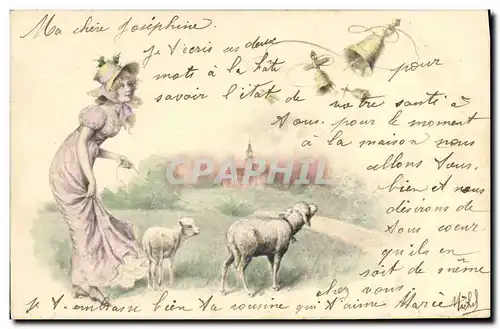 Ma chère Joséphine.
Je t'écris ces deux
mots à la hâte pour
savoir l'état de votre santé à
tous. pour le moment
à la maison nous
allons tous
bien et nous
désirons de
tous coeur
qu'ils en
soit de même
chez vous
je t'embrasse bien ta cousine qui t'aime Marie Michel
CPAPHIL